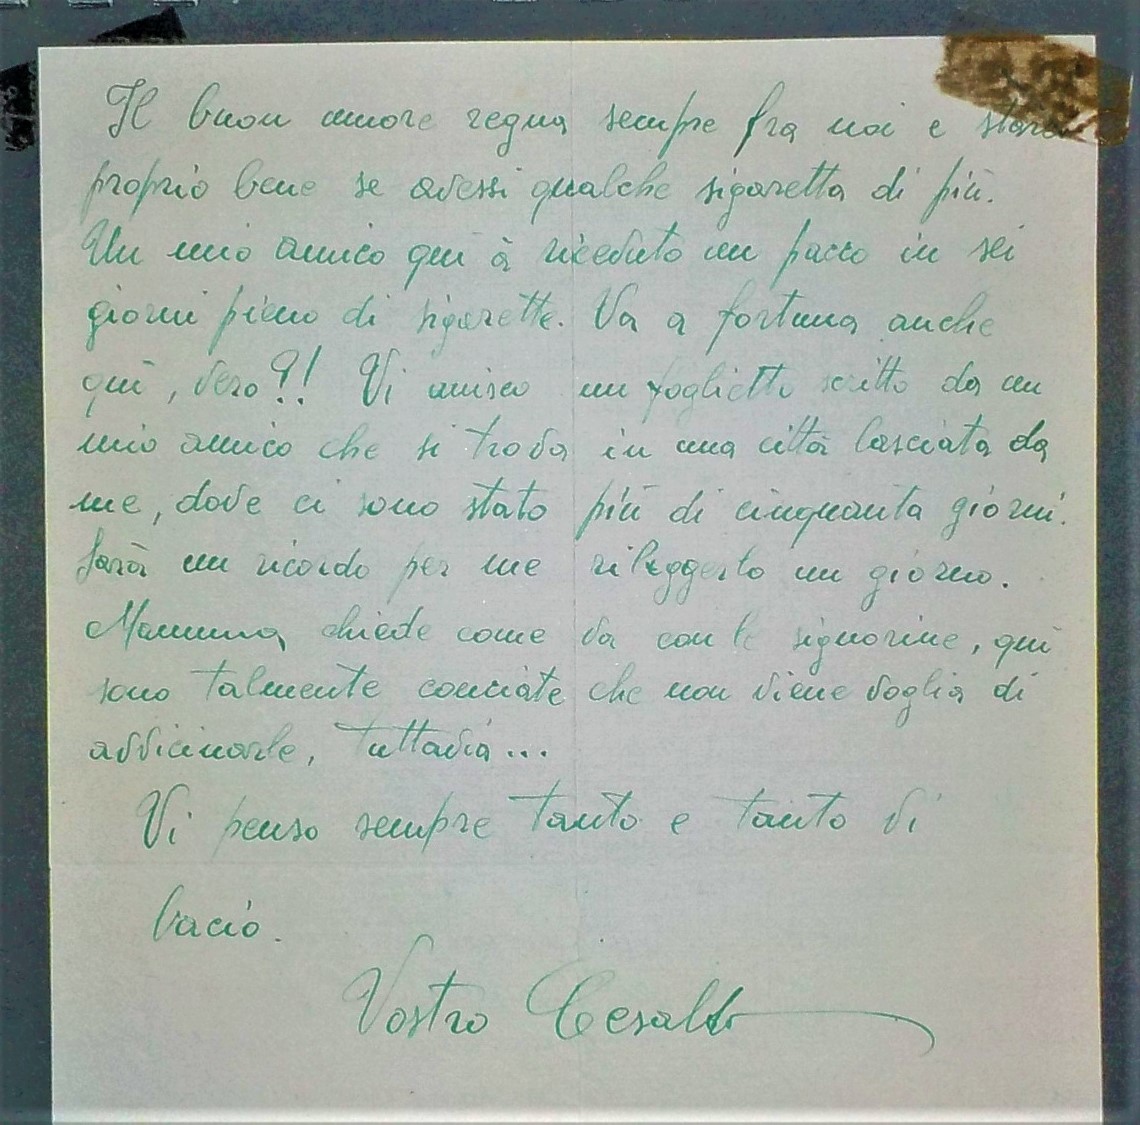 Il buon umore regna sempre fra noi e starei
proprio bene se avessi qualche sigaretta di più.
Un mio amico quì à ricevuto un pacco in sei
giorni pieno di sigarette. Va a fortuna anche
quì, vero?! Vi unisco un foglietto scritto da un
mio amico che si trova in una città lasciata da
me, dove ci sono stato più di cinquanta giorni.
Sarà un ricordo per me rileggerlo un giorno.
Mamma chiede come va con le signorine, quì
sono talmente conciate che non viene voglia di
avvicinarle, tuttavia...
Vi penso sempre tanto e tanto Vi
bacio.
Vostro